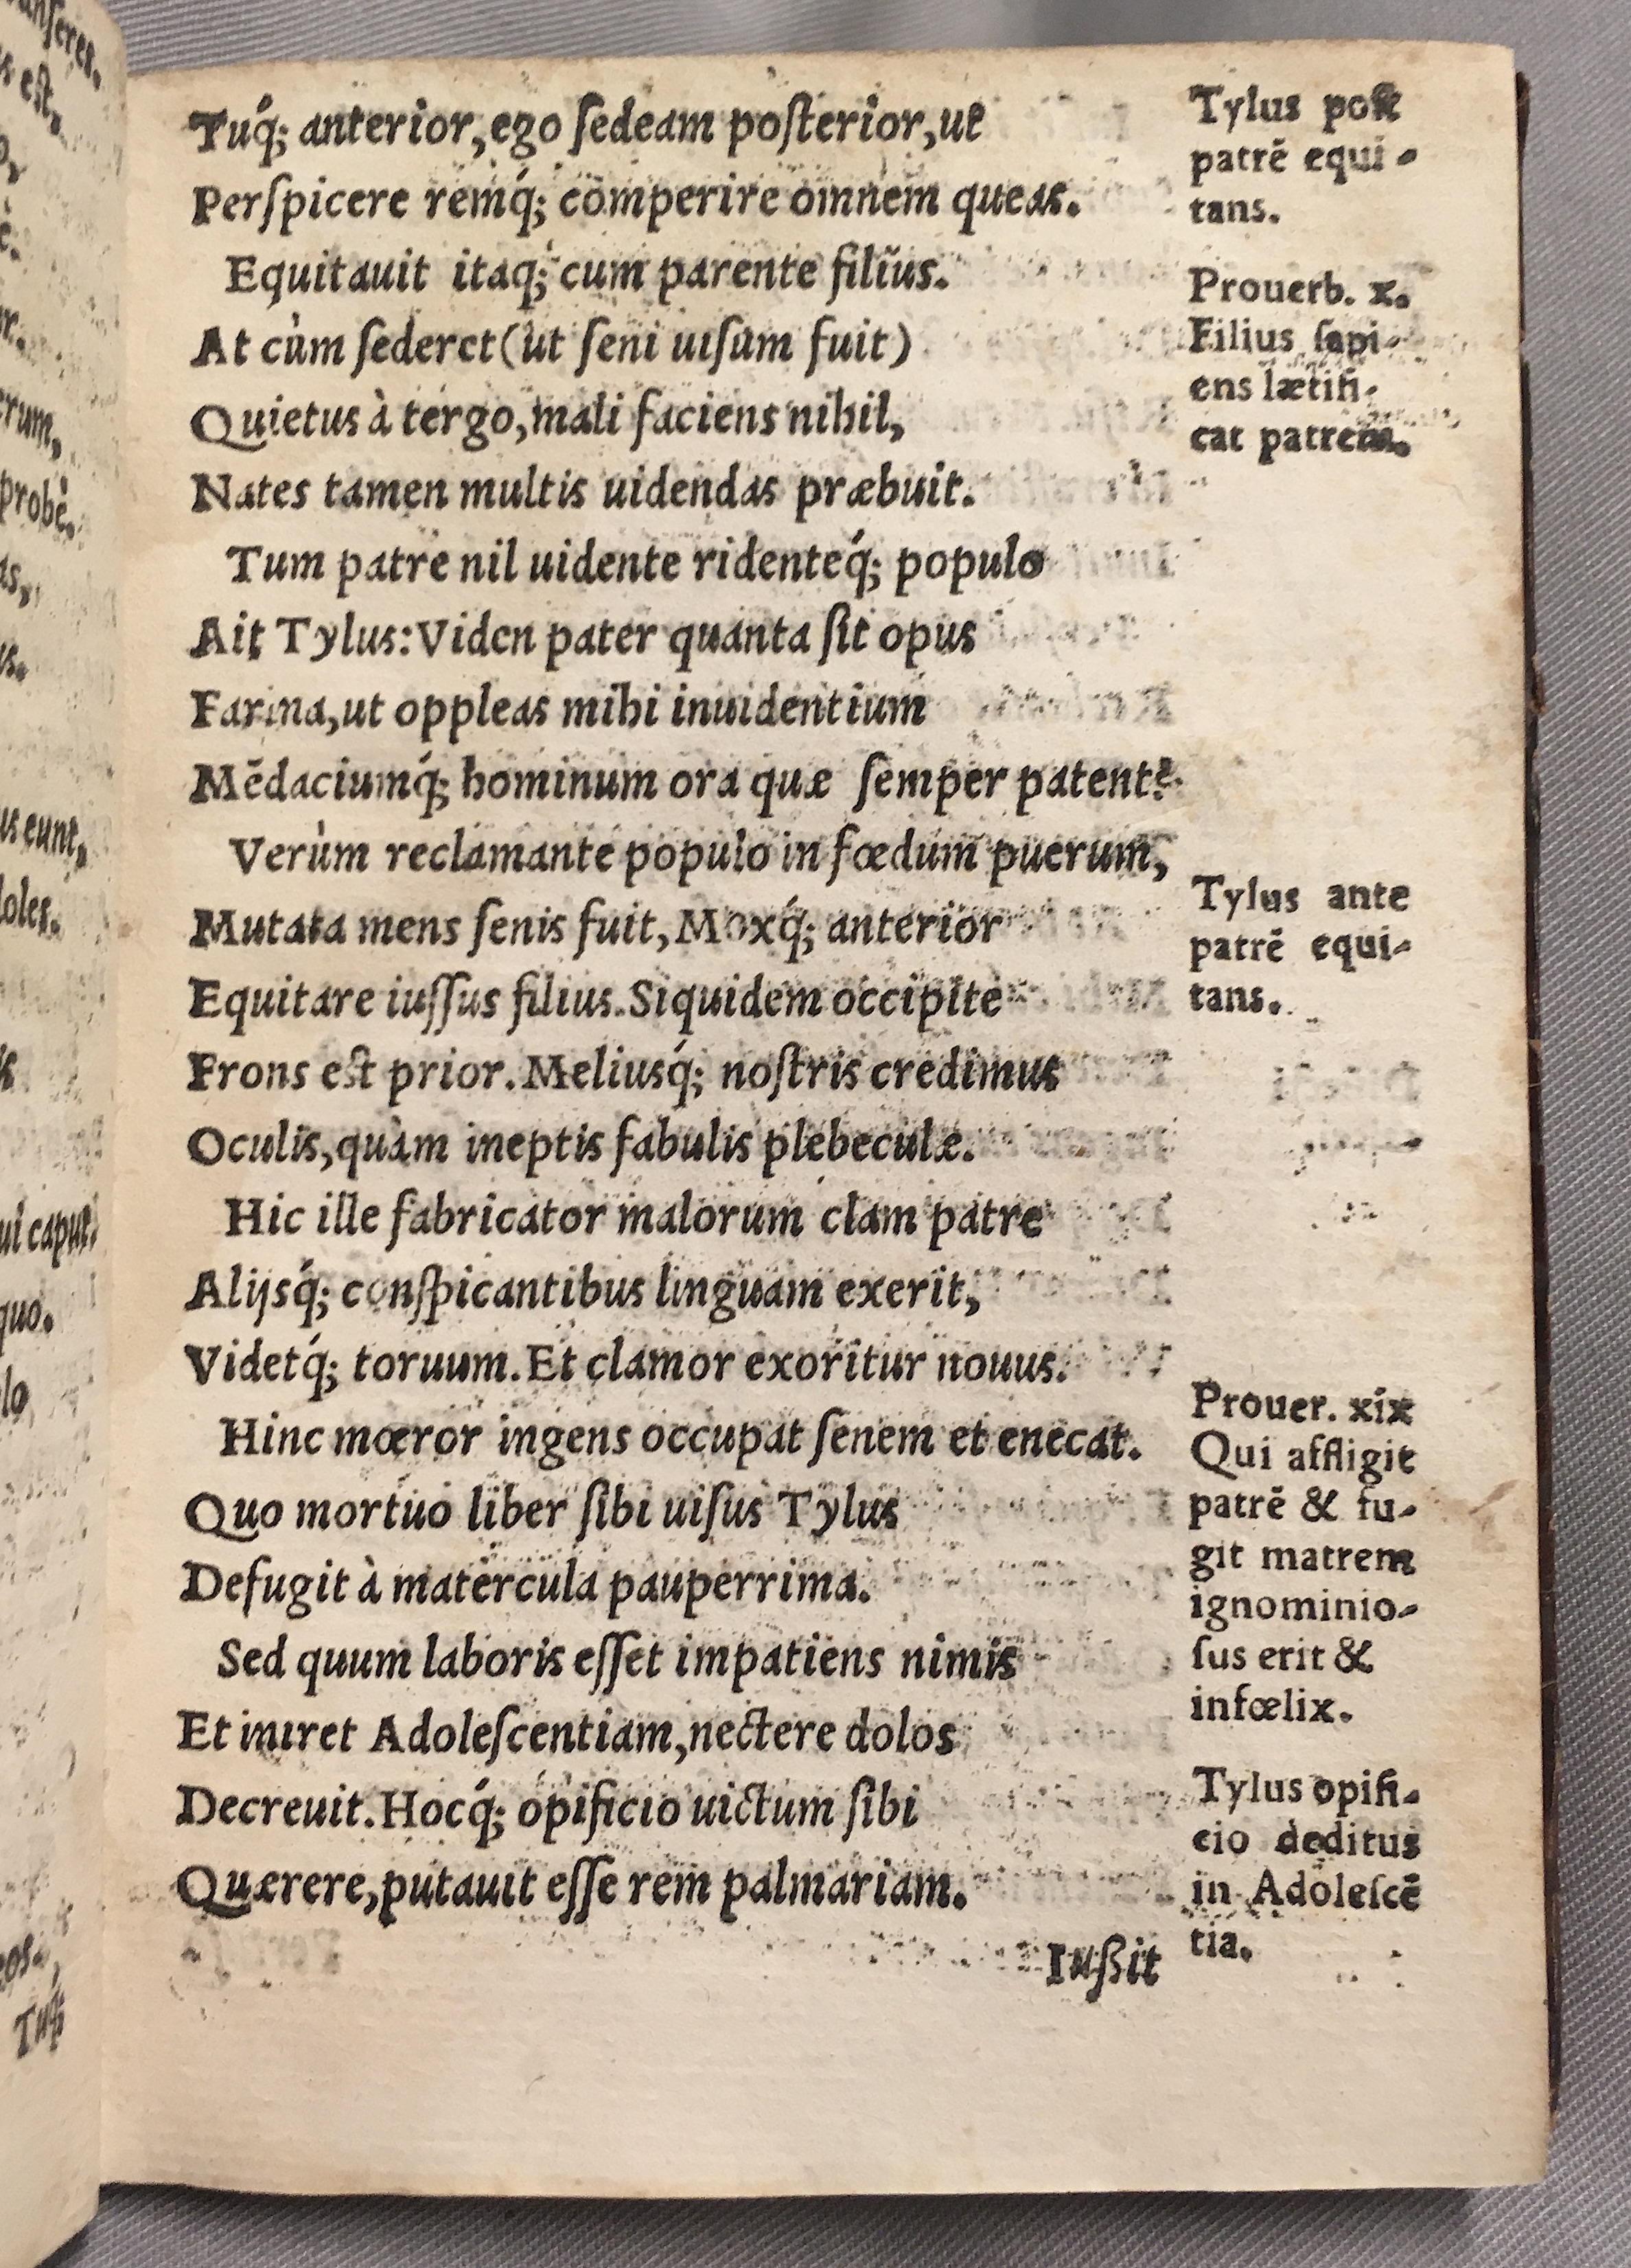 Tuq́; anterior, ego ſedeam poſterior, ut
Perſpicere remq́; comperire omnem queas.
Equitauit itaq; cum parente filius.
At cùm ſederet (ut ſeni uiſum fuit)
Quietus à tergo, mali faciens nihil,
Nates tamen multis uidendas præbuit.
Tum patre nil uidente ridenteq́; populo
Ait Tylus: Viden pater quanta ſit opus
Farina, ut oppleas mihi inuidentium
Mēdaciumq́; hominum ora quæ ſemper patent?
Verùm reclamante populo in fœdum puerum,
Mutata mens ſenis fuit, Moxq́; anterior
Equitare iuſſus filius. Siquidem occipite
Frons eſt prior. Meliusq́; noſtris credimus
Oculis, quàm ineptis fabulis plebeculæ.
Hic ille fabricator malorum clam patre
Alijsq́; conſpicantibus linguam exerit,
Videtq́; toruum. Et clamor exoritur nouus.
Hinc mœror ingens occupat ſenem et enecat.
Quo mortuo liber ſibi uiſus Tylus
Defugit à matercula pauperrima.
Sed quum laboris eſſet impatiens nimis
Et iniret Adoleſcentiam, nectere dolos
Decreuit. Hocq́; opificio uictum ſibi
Quærere, putauit eſſe rem palmariam.
Iußit
Tylus poſt
patrē equi-
tans.
Prouerb. x.
Filius ſapi-
ens lætifi-
cat patrem.
Tylus ante
patrē equi-
tans.
Prouer. xix
Qui affligit
patrē & fu-
git matrem
ignominio-
ſus erit &
infœlix.
Tylus opifi-
cio deditus
in Adoleſcē
tia.
eſt,
probè.
us eunt,
doles.
ui caput.
quo.
Tuq́;